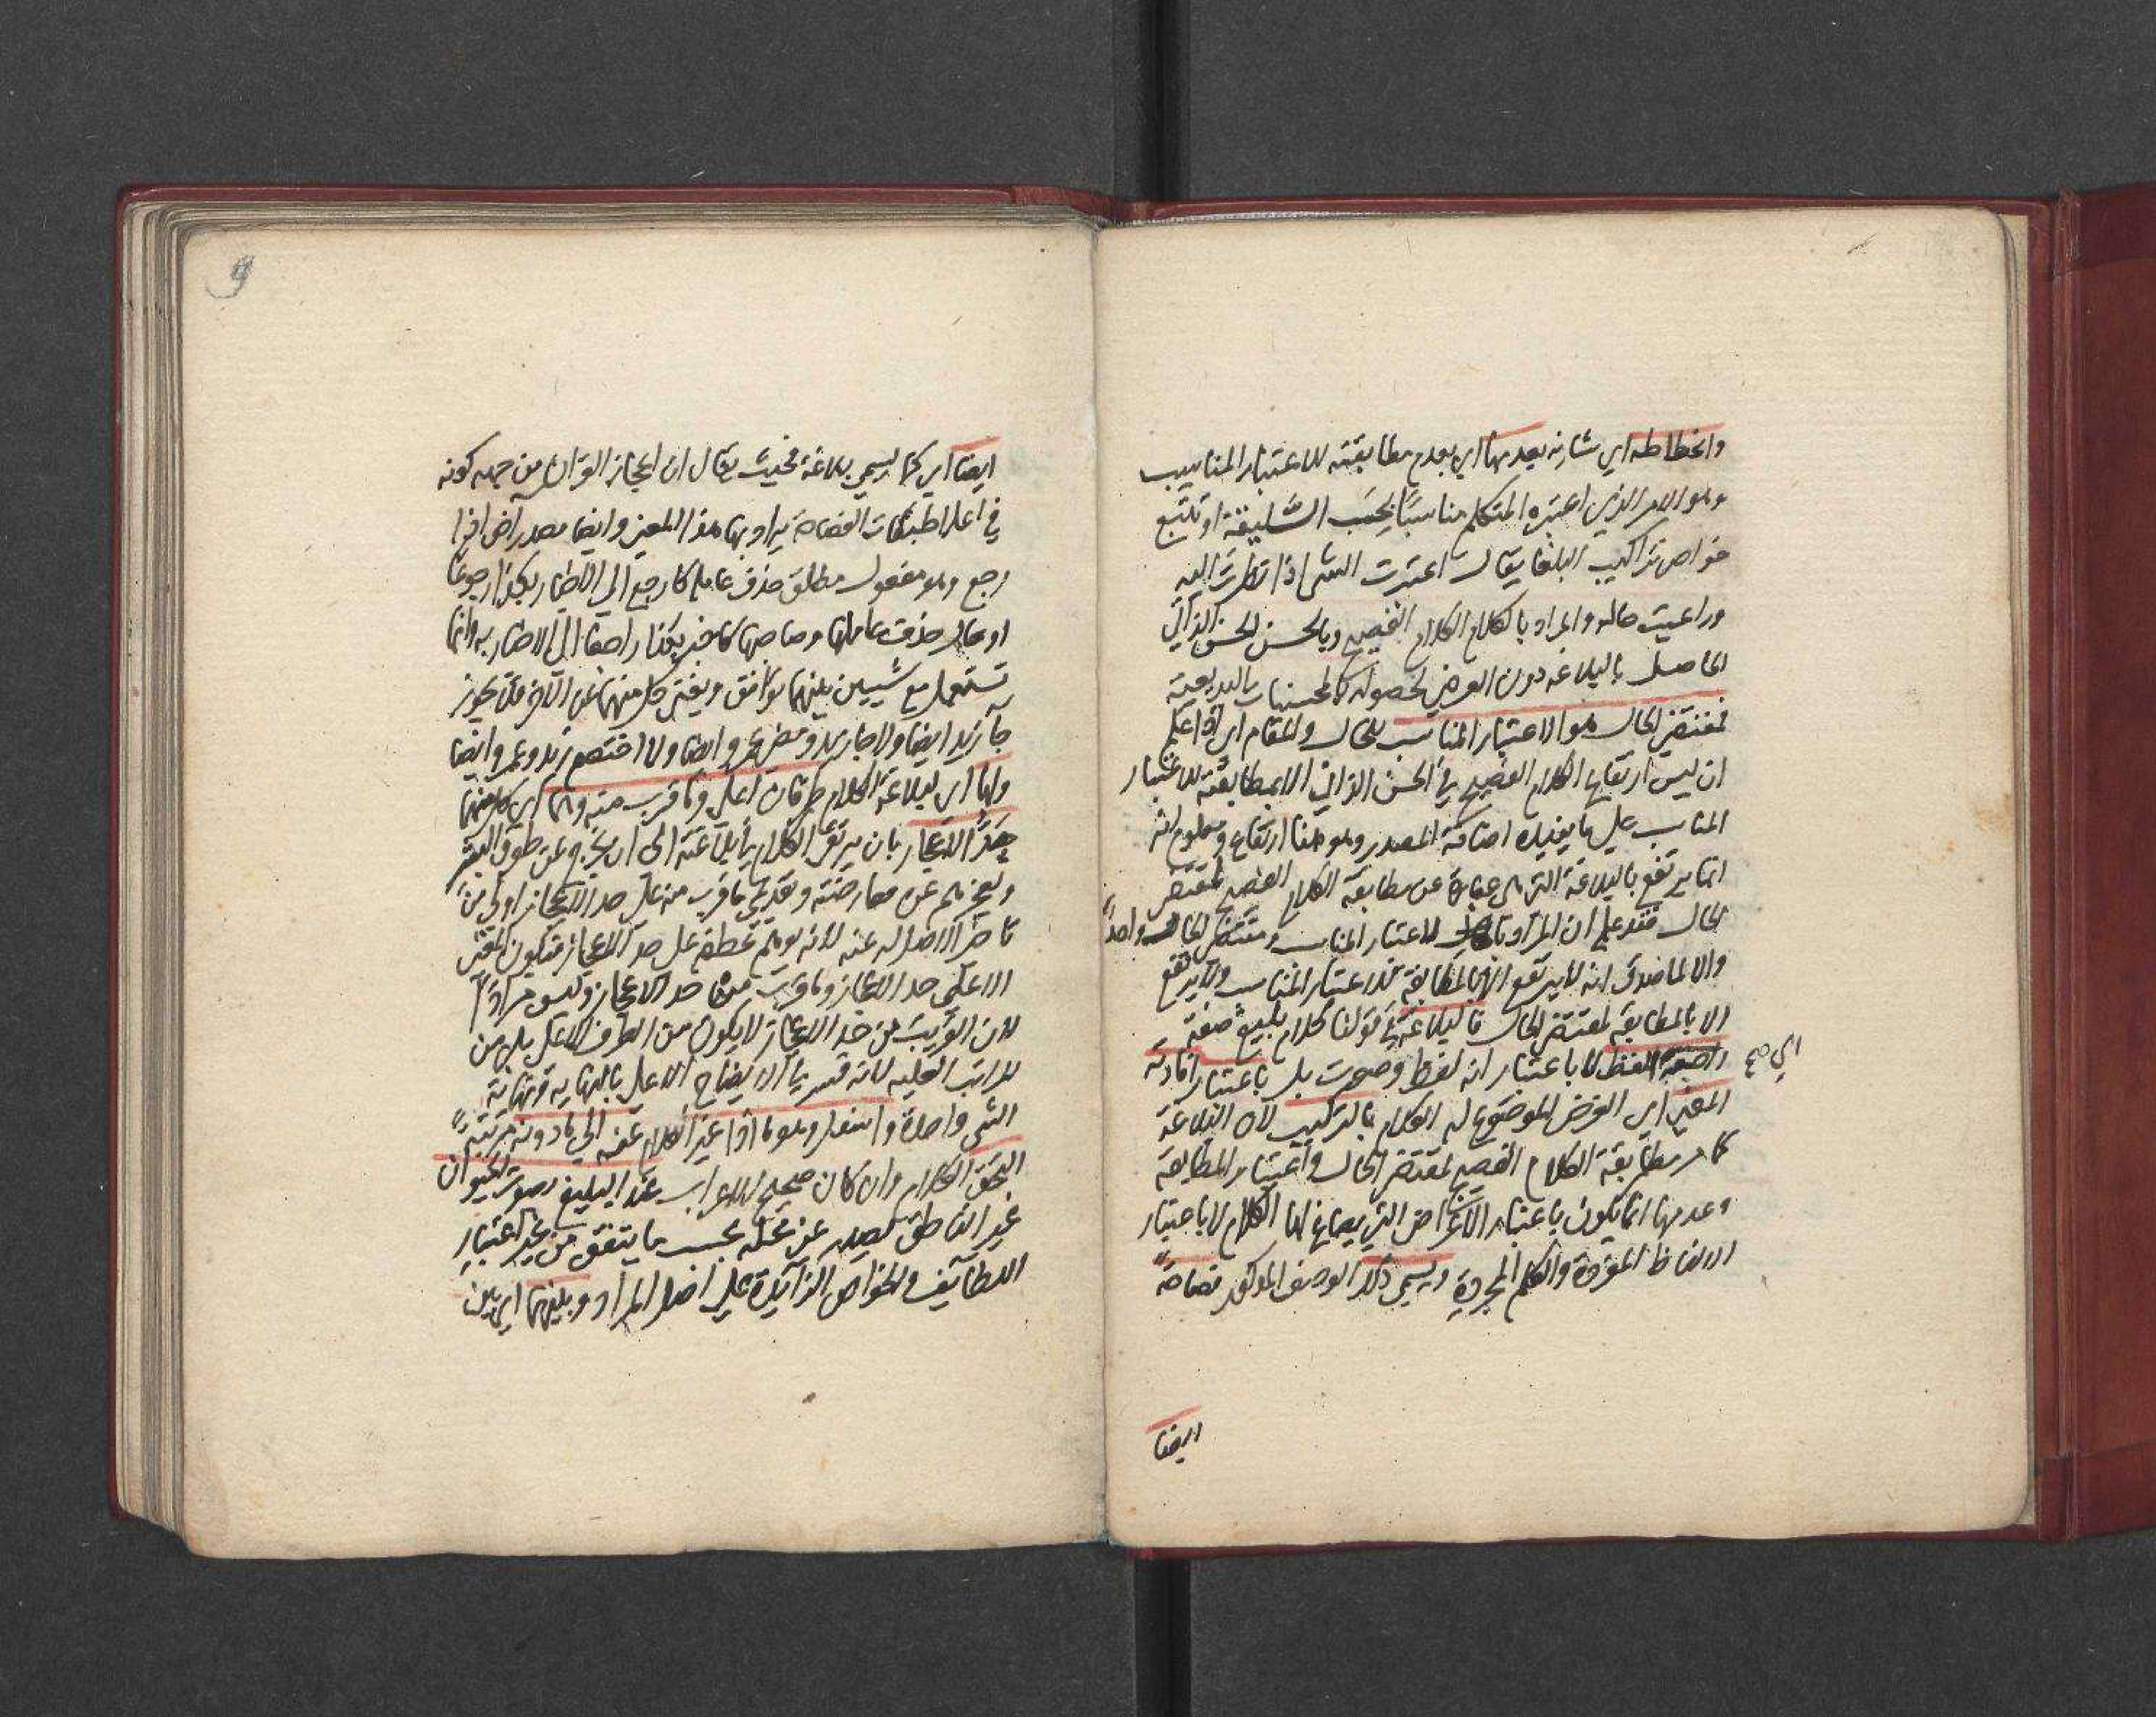 وانحطاطه اي شانه بعدمها اي بعدم مطابقته للاعتبار المناسب
وهو الامر الذي اعتبره المتكلم مناسبا بحسب السليقة او تتبع
خواص تراكيب البلغا يقال اعتبرت الشي اذا نظرت اليه
وراعيت حاله والمراد بالكلام الكلام الفصيح وبالحسن الحسن الذاتي
الحاصل بالبلاغه دون العرضي لحصوله بالمحسنات البديعية
فمقتضى الحال هو الاعتبار المناسب للحال والمقام اي اذا علم
ان ليس ارتفاع الكلام الفصيح في الحسن الذاتي الا بمطابقته للاعتبار
المناسب على ما يفيده اضافة المصدر وهو هنا ارتفاع ومعلوم انه
انما يرتفع بالبلاغة التي هي عبارة عن مطابقة الكلام الفصيح لمقتضى
الحال فقد علم ان المراد بالاعتبار المناسب ومقتضى الحال واحد
والا لما صدق انه لا يرتفع الا بالمطابقة للاعتبار المناسب ولا يرتفع
الا بالمطابقة لمقتضى الحال فالبلاغة في قولنا كلام بليغ صفة
راجعة للفظ لا باعتبار انه لفظ وصوت بل باعتبار افادته
اي صح
المعنى اي الغرض الموضوع له الكلام بالتركيب لان البلاغة
كما مر مطابقة الكلام الفصيح لمقتضى الحال واعتبار المطابقة
وعدمها انما يكون باعتبار الاغراض التي يصاغ لها الكلام لا باعتبار
الالفاظ المفردة والكلم المجردة ويسمى ذلك الوصف المذكور فصاحة
ايضا
9
ايضا اي كما يسمى بلاغة فحيث يقال ان اعجاز القران من جهة كونه
في اعلا طبقات الفصاحة يراد بها هذا المعنى وايضا مصدر اض اذا
رجع وهو مفعول مطلق حذف عامله كارجع الى الاخبار بكذا رجوعا
او حال حذف عاملها وصاحبها كاخبر بكذا راجعا الى الاخبار به وانما
تستعمل مع شيين بينهما توافق ويغني كل منهما عن الاخر فلا يجوز
جا زيد ايضا ولا جا زيد ومضى عمرو ايضا ولا اختصم زيد وعمرو ايضا
ولها اي لبلاغة الكلام طرفان اعلى وما قرب منه وهما اي كل منهما
حد الاعجاز بان يرتقي الكلام ببلاغته الى ان يخرج عن طوق البشر
ويعجزهم عن معارضته وتقديمي ما قرب منه على حد الاعجاز اولى من
تاخير الاصل له عنه لانه يوهم عطفه على حد الاعجاز فيكون المعنى
الاعلى حد الاعجاز وما قرب من حد الاعجاز وليس مرادا
لان القريب من حد الاعجاز لا يكون من الطرف الاعلى بل من
المراتب العليه لانه فسر في الايضاح الاعلى بالنهاية ونهاية
الشي واحدة واسفل وهو ما اذا غير الكلام عنه الى ما دونه مرتبة
التحق الكلام وان كان صحيح الاعراب عند البليغ بصوت الحيوان
غير الناطق يصدر عن محله بحسب ما يتفق من غير اعتبار
اللطايف والخواص الزايدة على اصل المراد وبينهما اي بين